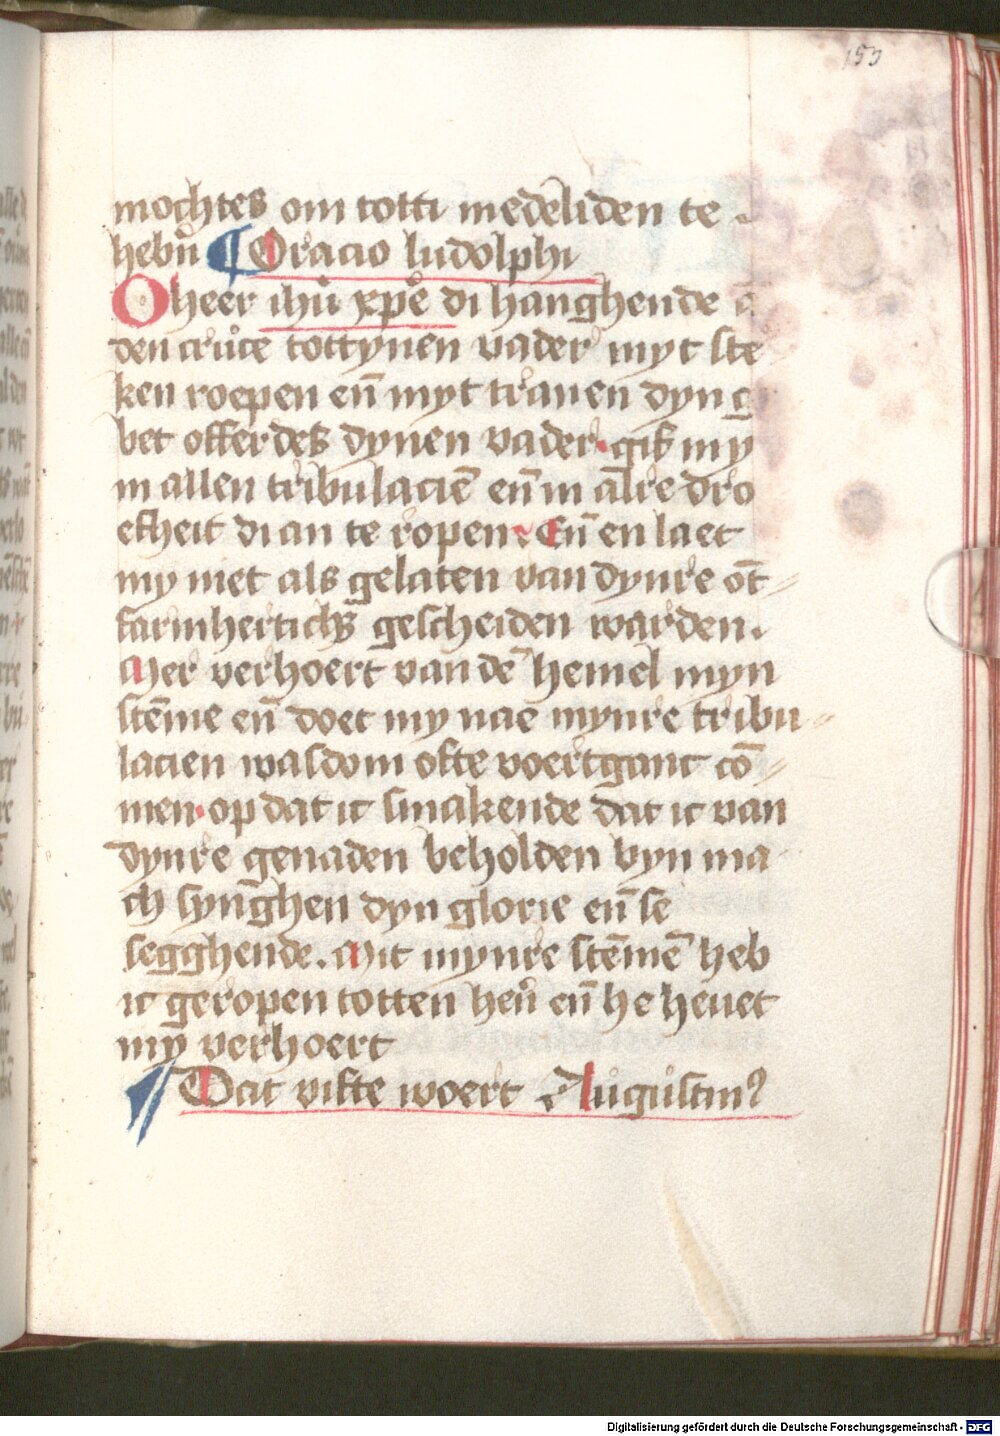 153
mochtes om totti medeliden te
hebn̄ ¶ Oracio ludolphi
O heer ihū xpē di hanghende ā
den cruce tottynen vader myt ste
ken roepen en̄ myt tranen dyn g
bet offerdes dynen vader· gif my
in allen tribulaciē en̄ in alre dro
efheit di an te ropen. En̄ en laet
my niet als gelaten van dynre ot̄
farmherticħ gescheiden warden.
Mer verhoert van dē hemel myn
stēme en̄ doet my nae mynre tribu
lacien wasdom ofte voertganc cō
men· op dat ic smakende dat ic van
dynre genaden beholden byn ma
ch synghen dyn glorie en̄ se
segghende. Mit mynre stēmē heb
ic geropen totten hen̄ en̄ he heuet
my verhoert
¶ Dat vifte woert Augustinꝰ
Digitalisierung gefördert durch die Deutsche Forschungsgemeinschaft - DFG